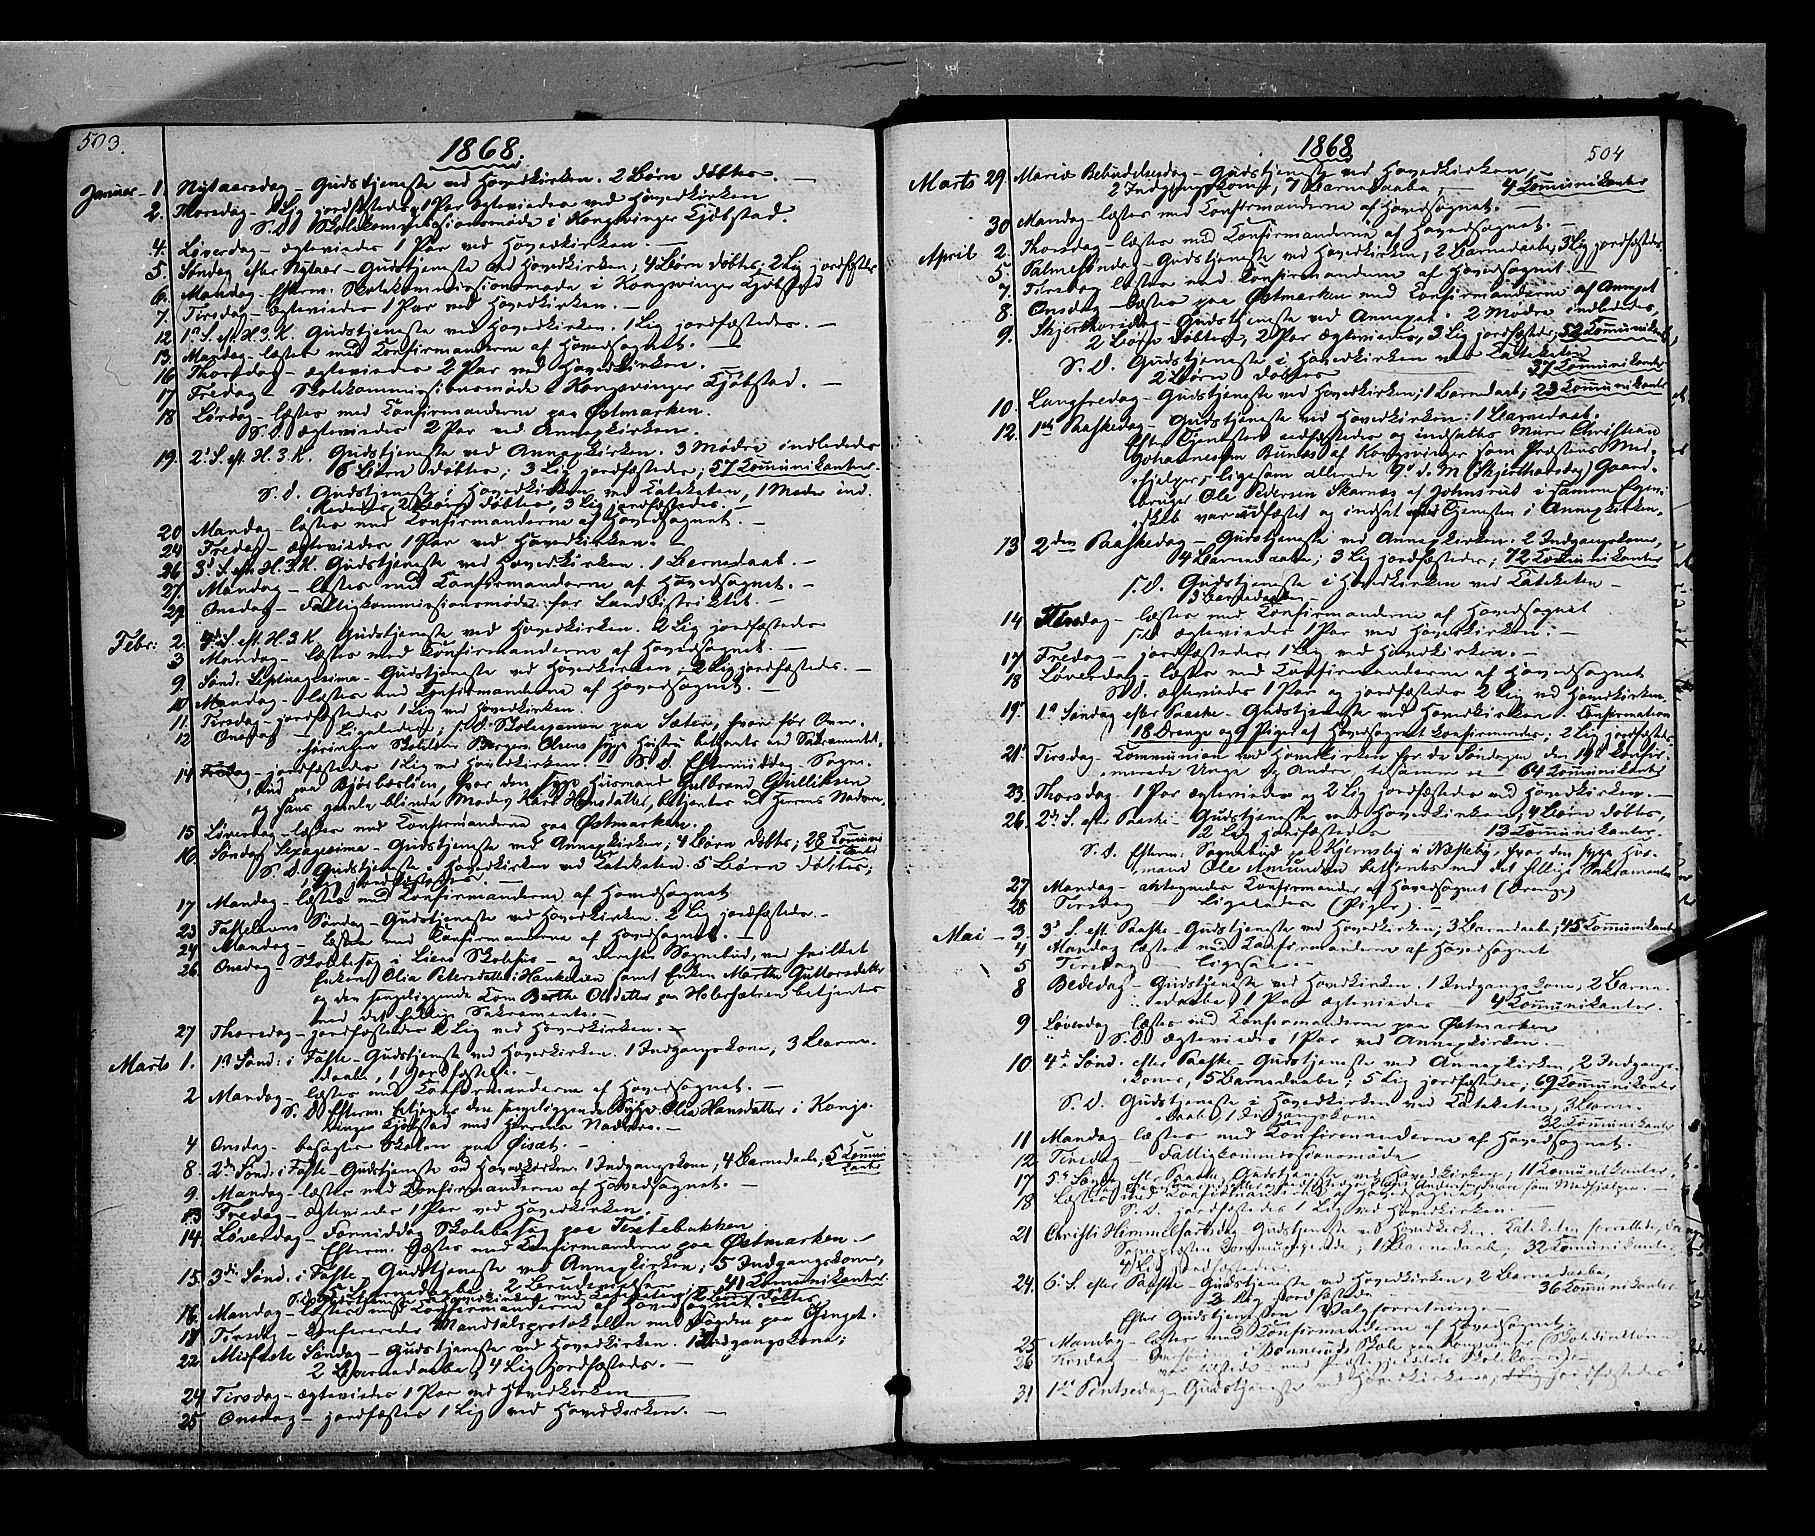 503.
1868.
Januar - 1. Nytaarsdag - Gudstjeneste ved Hovedkirken. 2 Børn døbtes. -
2. Thorsdag - Lig jordfæstedes, 1 Par ægteviedes ved Hovedkirken
S. D. Skolekommissionsmøde i Kongsvinger Kjøbstad.
4. Løverdag - ægteviedes 1 Par ved Hovedkirken. -
5. Søndag efter Nytaar - Gudstjeneste ved Hovedkirken; 4 Børn døbtes; 2 Lig jordfæstes
6. Mandag - Efterm. Skolekommissionsmøde i Kongsvinger Kjøbstad
7. Tirsdag - ægteviedes 1 Par ved Hovedkirken. -
12 1ste S. eft. H. 3. K. Gudstjeneste ved Hovedkirken. 1 Lig jordfæstedes. -
13. Mandag - læstes med Konfirmanderne af Hovedsognet. -
16 Thorsdag - ægteviedes 2 Par ved Hovedkirken.
17. Fredag - Skolekommissionsmøde i Kongsvinger Kjøbstad. -
18 Lørdag - læstes med Konfirmanderne paa Østmarken.
S. D. ægteviedes 2 Par ved Annexkirken. -
19. 2. S. eft. H. 3. K. Gudstjeneste ved Annexkirken. 3 Mødre indlededes
6 Børn døbtes; 3 Lig jordfæstedes; 57 Kommunikanter.
S. D. Gudstjeneste i Hovedkirken ved Kateketen, 1 Moder ind-
lededes, 2 Børn døbtes, 3 Lig jordfæstedes. -
20 Mandag - læstes med Konfirmanderne af Hovedsognet. -
24 Fredag - ægteviedes 1 Par ved Hovedkirken. -
26 3. S. eft. H. 3. K. Gudstjeneste ved Hovedkirken. 1 Barnedaab. -
27. Mandag - læstes med Konfirmanderne af Hovedsognet. -
29. Onsdag - Fattigkommissionsmøde for Landdistriktet. -
Febr: 2. 4de S. eft. H. 3. K. Gudstjeneste ved Hovedkirken. 2 Lig jordfæstedes
3 Mandag - læstes med Konfirmanderne af Hovedsognet. -
9. Sønd: Septuagesima - Gudstjeneste ved Hovedkirken; 2 Lig jordfæstedes. -
10 Mandag - læstes med Konfirmanderne af Hovedsognet. -
11. Tirsdag - jordfæstedes 1 Lig ved Hovedkirken
12 Onsdag - Ligeledes; S. D. Skoleexamen paa Sæter, hvor før Over-
høringen Skoleholder Bergers Olsens syge Hustru betjentes med Sakramentet.
14. Fredag - jordfæstedes 1 Lig ved Hovedkirken. S. D. Eftermiddag - Sogne-
bud paa Bjørbæslien, hvor den syge Husmand Gulbrand Gulliksen
og hans gamle blinde Moder Kari Hansdatter, betjentes med Herrens Nadvere.
15 Løverdag - læstes med Konfirmanderne paa Østmarken.
16. Søndag Sexagesima - Gudstjeneste ved Annexkirken; 4 Børn døbtes; 28 Kommuni-
kanter
S. D. Gudstjeneste i Hovedkirken ved Kateketen. 5 Børn døbtes;
Lig jordfæstedes. -
17 Mandag - læstes med Konfirmanderne af Hovedsognet
23 Fastelavns Søndag - Gudstjeneste ved Hovedkirken. 2 Lig jordfæstedes. -
24. Mandag - læstes med Konfirmanderne af Hovedsognet. -
26. Onsdag - Skolebesøg i Liens Skolehus - og derefter Sognebud, ved hvilket
Enken Olia Petersdatter i Haukeaaen samt Enken Marthe Guttormsdatter
og den sengeliggende Kone Berthe Olsdatter paa Holersætren betjentes
med det hellige Sakramente. -
27 Thorsdag - jordfæstedes 2 Lig ved Hovedkirken. -
Marts 1. 1ste Sønd: i Faste - Gudstjeneste ved Hovedkirken. 1 Indgangskone, 3 Barne-
daabe, 1 Jordfæstelse. -
2 Mandag - læstes med Konfirmanderne af Hovedsognet. -
S. D. Efterm. betjentes den sengeliggende Olia Hansdatter i Kongs-
vinger Kjøbstad med Herrens Nadvere. -
4 Onsdag - besøgtes Skolen paa Øiset. -
8. 2den Sønd: i Faste - Gudstjeneste ved Hovedkirken. 1 Indgangskone, 4 Barnedaabe, 5 Kommuni-
kanter
9 Mandag - læstes med Konfirmanderne af Hovedsognet. -
13 Fredag - ægteviedes 1 Par ved Hovedkirken.
14. Løverdag - Formiddag Skolebesøg paa Tistebakken
Efterm. Læstes med Konfirmanderne paa Østmarken. -
15. 3die Sønd: i Faste, Gudstjeneste ved Annexkirken; 5 Indgangskoner,
2 Brudevielser 41 Kommunikanter
S. D. Gudstjeneste i Hovedkirken ved Kateketen, 2 Børn døbtes
16. Mandag - læstes med Konfirmanderne af Hovedsognet.
17 Tirsdag - Konfereredes Mandtalsprotokollen med Fogden paa Gjenget.
22. Midfaste Søndag - Gudstjeneste ved Hovedkirken. 1 Indgangskone;
2 Barnedaabe, 4 Lig jordfæstedes. -
24 Tirsdag - ægteviedes 1 Par ved Hovedkirken
25. Onsdag - jordfæstes 1 Lig ved Hovedkirken. -
1868
504
Marts 29. Mariæ Bebudelsesdag - Gudstjeneste ved Hovedkirken,
2 Indgangskoner, 7 Barnedaabe, - 4 Kommunikanter
30 Mandag - læstes med Konfirmanderne af Hovedsognet. -
April 2. Thorsdag - læstes med Konfirmanderne af Hovedsognet. -
5. Palmesøndag - Gudstjeneste ved Hovedkirken, 2 Barnedaabe, 3 Lig jordfæstedes.
7. Tirsdag læstes med Konfirmanderne af Hovedsognet -
8. Onsdag - læstes paa Østmarken med Konfirmanderne af Annexet
9. Skjærthorsdag - Gudstjeneste ved Annexet. 2 Mødre indlededes,
2 Børn døbtes, 2 Par ægteviedes, 3 Lig jordfæstedes, 52 Kommunikanter,
S. D. Gudstjeneste i Hovedkirken ved Kateketen
2 Børn døbtes 37 Kommunikanter
10. Langfredag - Gudstjeneste ved Hovedkirken; 1 Barnedaab; 23 Kommunikanter
12. 1ste Paaskedag - Gudstjeneste ved Hovedkirken: 1 Barnedaab.
Efter Tjenesten edfæstedes og indsattes Murer Christian
Johannessen Bunæs af Kongsvinger som Præstens Med-
hjelper, ligesom allerede 9de d. M. (Skjærthorsdag) Gaard-
bruger Ole Pedersen Skarnæs af Johnsrud i samme Egen-
skab var edfæstet og indsat ved Tjenesten i Annexkirken.
13 2den Paaskedag - Gudstjeneste ved Annexkirken: 2 Indgangskoner,
4 Barnedaabe; 3 Lig jordfæstedes; 72 Kommunikanter
S. D. Gudstjeneste i Hovedkirken ved Kateketen -
3 Barnedaabe -
14 Tirsdag - læstes med Konfirmanderne af Hovedsognet
S. D. ægteviedes 1 Par ved Hovedkirken. -
17 Fredag - jordfæstedes 1 Lig ved Hovedkirken. -
18 Løverdag - læstes med Konfirmanderne af Hovedsognet
S. D. ægteviedes 1 Par og jordfæstedes 2 Lig ved Hovedkirken
19. 1ste Søndag efter Paaske - Gudstjeneste ved Hovedkirken. Confirmation
18 Drenge og 9 Piger af Hovedsognet konfirmeredes; 2 Lig jordfæstedes
21. Tirsdag - Kommunion ved Hovedkirken for de Søndagen den 19de konfir-
merede Unge og Andre, tilsammen 64 Kommunikanter
23. Thorsdag - 1 Par ægteviedes og 2 Lig jordfæstedes ved Hovedkirken. -
26. 2den S. efter Paaske - Gudstjeneste ved Hovedkirken, 4 Børn døbtes,
2 Lig jordfæstedes 13 Kommunikanter.
S. D. Efterm. Sognebud paa Kjernsby i Næsteby, hvor den syge Hus-
mand Ole Amundsen betjentes med det hellige Sakramente
27 Mandag - antegnedes Konfirmander af Hovedsognet (Drenge)
28 Tirsdag - ligeledes (Piger). -
Mai - 3. 3die S. eft. Paaske - Gudstjeneste ved Hovedkirken, 3 Barnedaabe; 45 Kommunikanter
4 Mandag læstes med Konfirmanderne af Hovedsognet
5 Tirsdag - ligesaa. -
8 Bededag - Gudstjeneste ved Hovedkirken. 1 Indgangskone, 2 Barne-
daabe 1 Par ægteviedes - 4 Kommunikanter.
9 Løverdag - læstes med Konfirmanderne paa Østmarken
S. D. ægteviedes 1 Par ved Annexkirken. -
10 4de Sønd. efter Paaske - Gudstjeneste ved Annexkirken, 2 Indgangs-
koner, 5 Barnedaabe; 5 Lig jordfæstedes; 69 Kommunikanter
S. D. Gudstjeneste i Hovedkirken ved Kateketen, 3 Barne-
daabe, 1 Indgangskone 32 Kommunikanter
11 Mandag - læstes med Konfirmanderne af Hovedsognet.
12 Tirsdag - Fattigkommissionsmøde
17 5te Sønd. efter Paaske Gudstjeneste ved Hovedkirken; 11 Kommunikanter.
som Medhjælper. -
18 Læstes med Konfirmanderne af Hovedsognet
S. D. jordfæstedes 1 Lig ved Hovedkirken. -
21 Christi Himmelfartsdag Gudstjeneste ved Hovedkirken. Kateketen forrettede,
Sognepræsten kommuniserende; 1 Barnedaab, 32 Kommunikanter
4 Lig jordfæstedes.
24. 6te S. efter Paaske - Gudstjeneste ved Hovedkirken, 2 Barnedaabe,
2 Lig jordfæstede 36 Kommunikanter
Efter Gudstjenesten Valgforretning. -
25 Mandag - læstes med Konfirmanderne af Hovedsognet. -
26 Tirsdag - i Bønnerud Skole
31 1ste Pintsedag - Gudstjeneste ved Hovedkirken, jordfæstedes